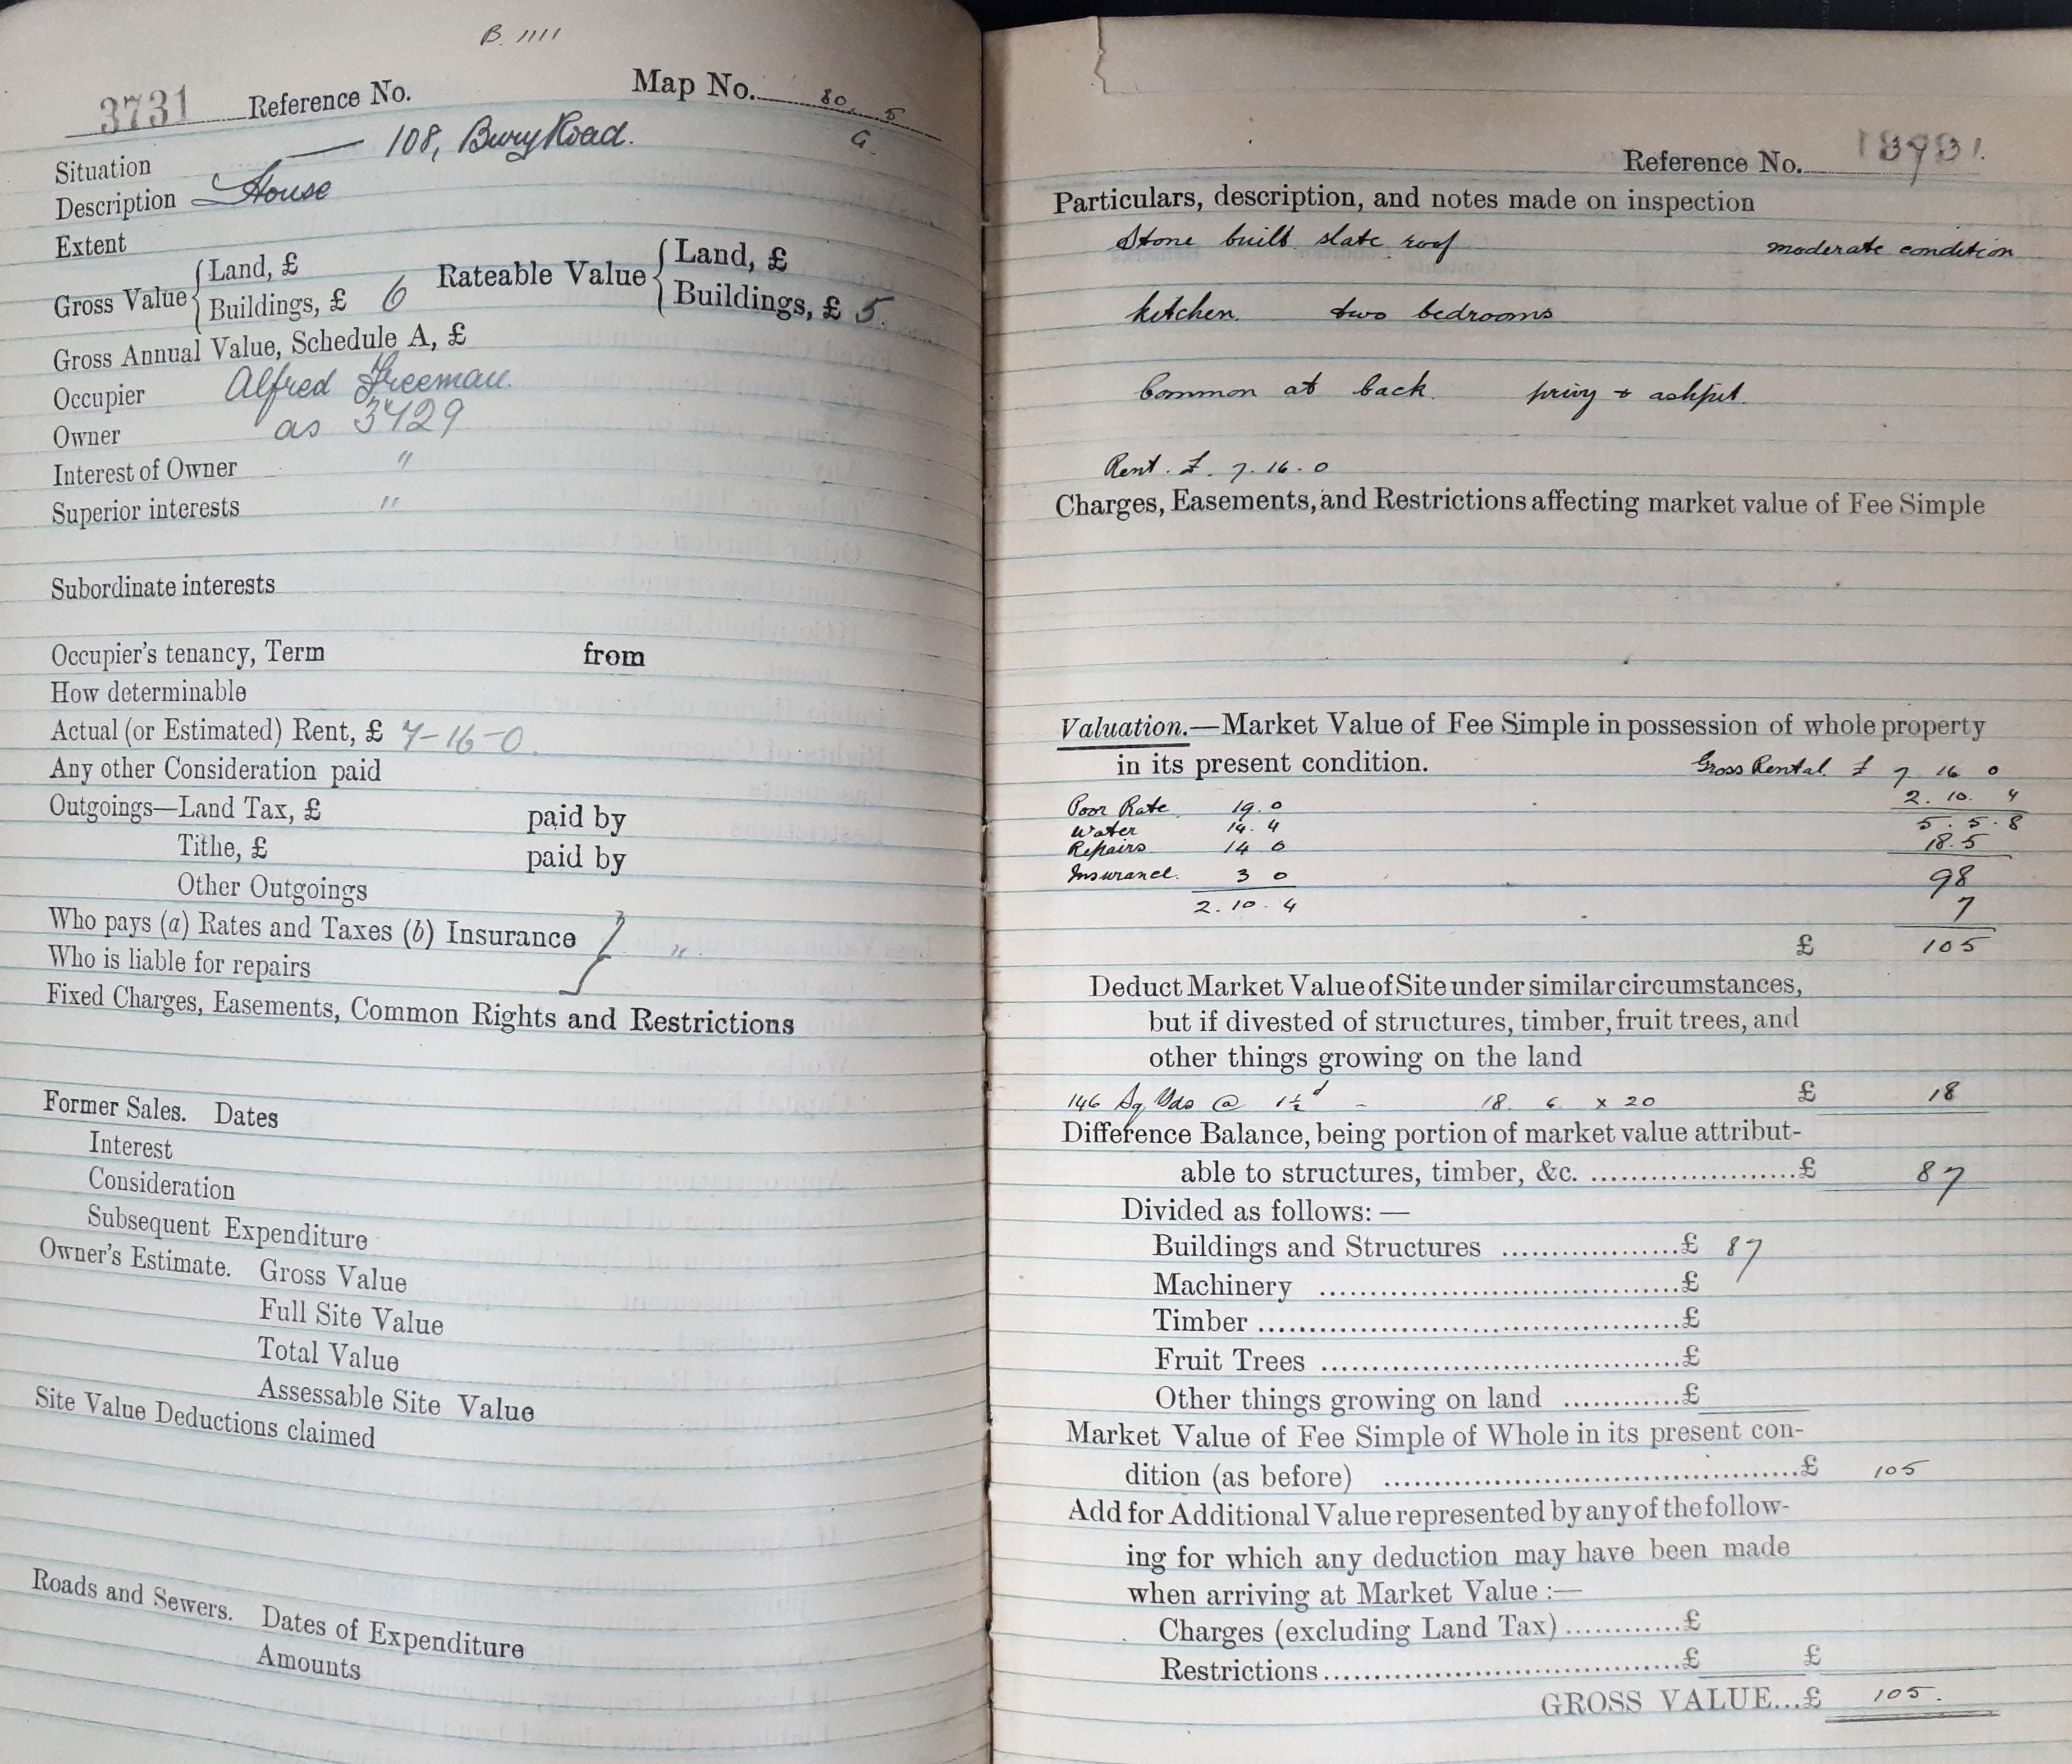 B. 1111
3731 Reference No. Map No. 80. 5
G.
Situation — 108, Bury Road.
Description House
Extent
Gross Value { Land, £ Rateable Value { Land, £
Buildings, £ 6 Buildings, £ 5.
Gross Annual Value, Schedule A, £
Occupier Alfred Freeman.
Owner as 3429
Interest of Owner "
Superior interests "
Subordinate interests
Occupier's tenancy, Term from
How determinable
Actual (or Estimated) Rent, £ 7-16-0.
Any other Consideration paid
Outgoings—Land Tax, £ paid by
Tithe, £ paid by
Other Outgoings
Who pays (a) Rates and Taxes (b) Insurance } "
Who is liable for repairs
Fixed Charges, Easements, Common Rights and Restrictions
Former Sales. Dates
Interest
Consideration
Subsequent Expenditure
Owner's Estimate. Gross Value
Full Site Value
Total Value
Assessable Site Value
Site Value Deductions claimed
Roads and Sewers. Dates of Expenditure
Amounts
Reference No.
Particulars, description, and notes made on inspection
Stone built slate roof moderate condition
kitchen. two bedrooms
Common at back. privy & ashpit.
Rent. £. 7. 16. 0
Charges, Easements, and Restrictions affecting market value of Fee Simple
Valuation.—Market Value of Fee Simple in possession of whole property
in its present condition. Gross Rental £ 7 16 0
Poor Rate. 19. 0 2. 10. 4
Water 14. 4 5. 5. 8
Repairs 14 0 18.5
Insurance. 3 0 98
2. 10. 4 7
£ 105
Deduct Market Value of Site under similar circumstances,
but if divested of structures, timber, fruit trees, and
other things growing on the land
146 Sq Yds @ 1½d - 18. 6 x 20 £ 18
Difference Balance, being portion of market value attribut-
able to structures, timber, &c. ....................£ 87
Divided as follows: —
Buildings and Structures .................£ 87
Machinery ....................................£
Timber ..........................................£
Fruit Trees ....................................£
Other things growing on land ............£
Market Value of Fee Simple of Whole in its present con-
dition (as before) ..........................................£ 105
Add for Additional Value represented by any of the follow-
ing for which any deduction may have been made
when arriving at Market Value :—
Charges (excluding Land Tax)............£
Restrictions....................................£ £
GROSS VALUE...£ 105.